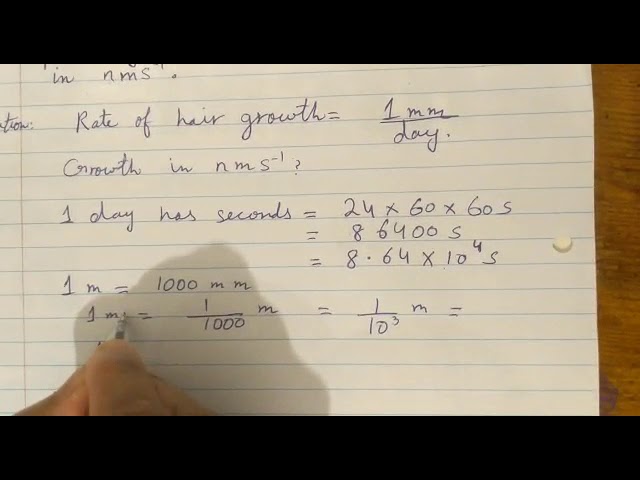 in nms⁻¹.
ation: Rate of hair growth = 1 mm / day.
Growth in nms⁻¹?
1 day has seconds = 24 × 60 × 60 s
= 86400 s
= 8.64 × 10⁴ s
1 m = 1000 mm
1 m = 1/1000 m = 1/10³ m =